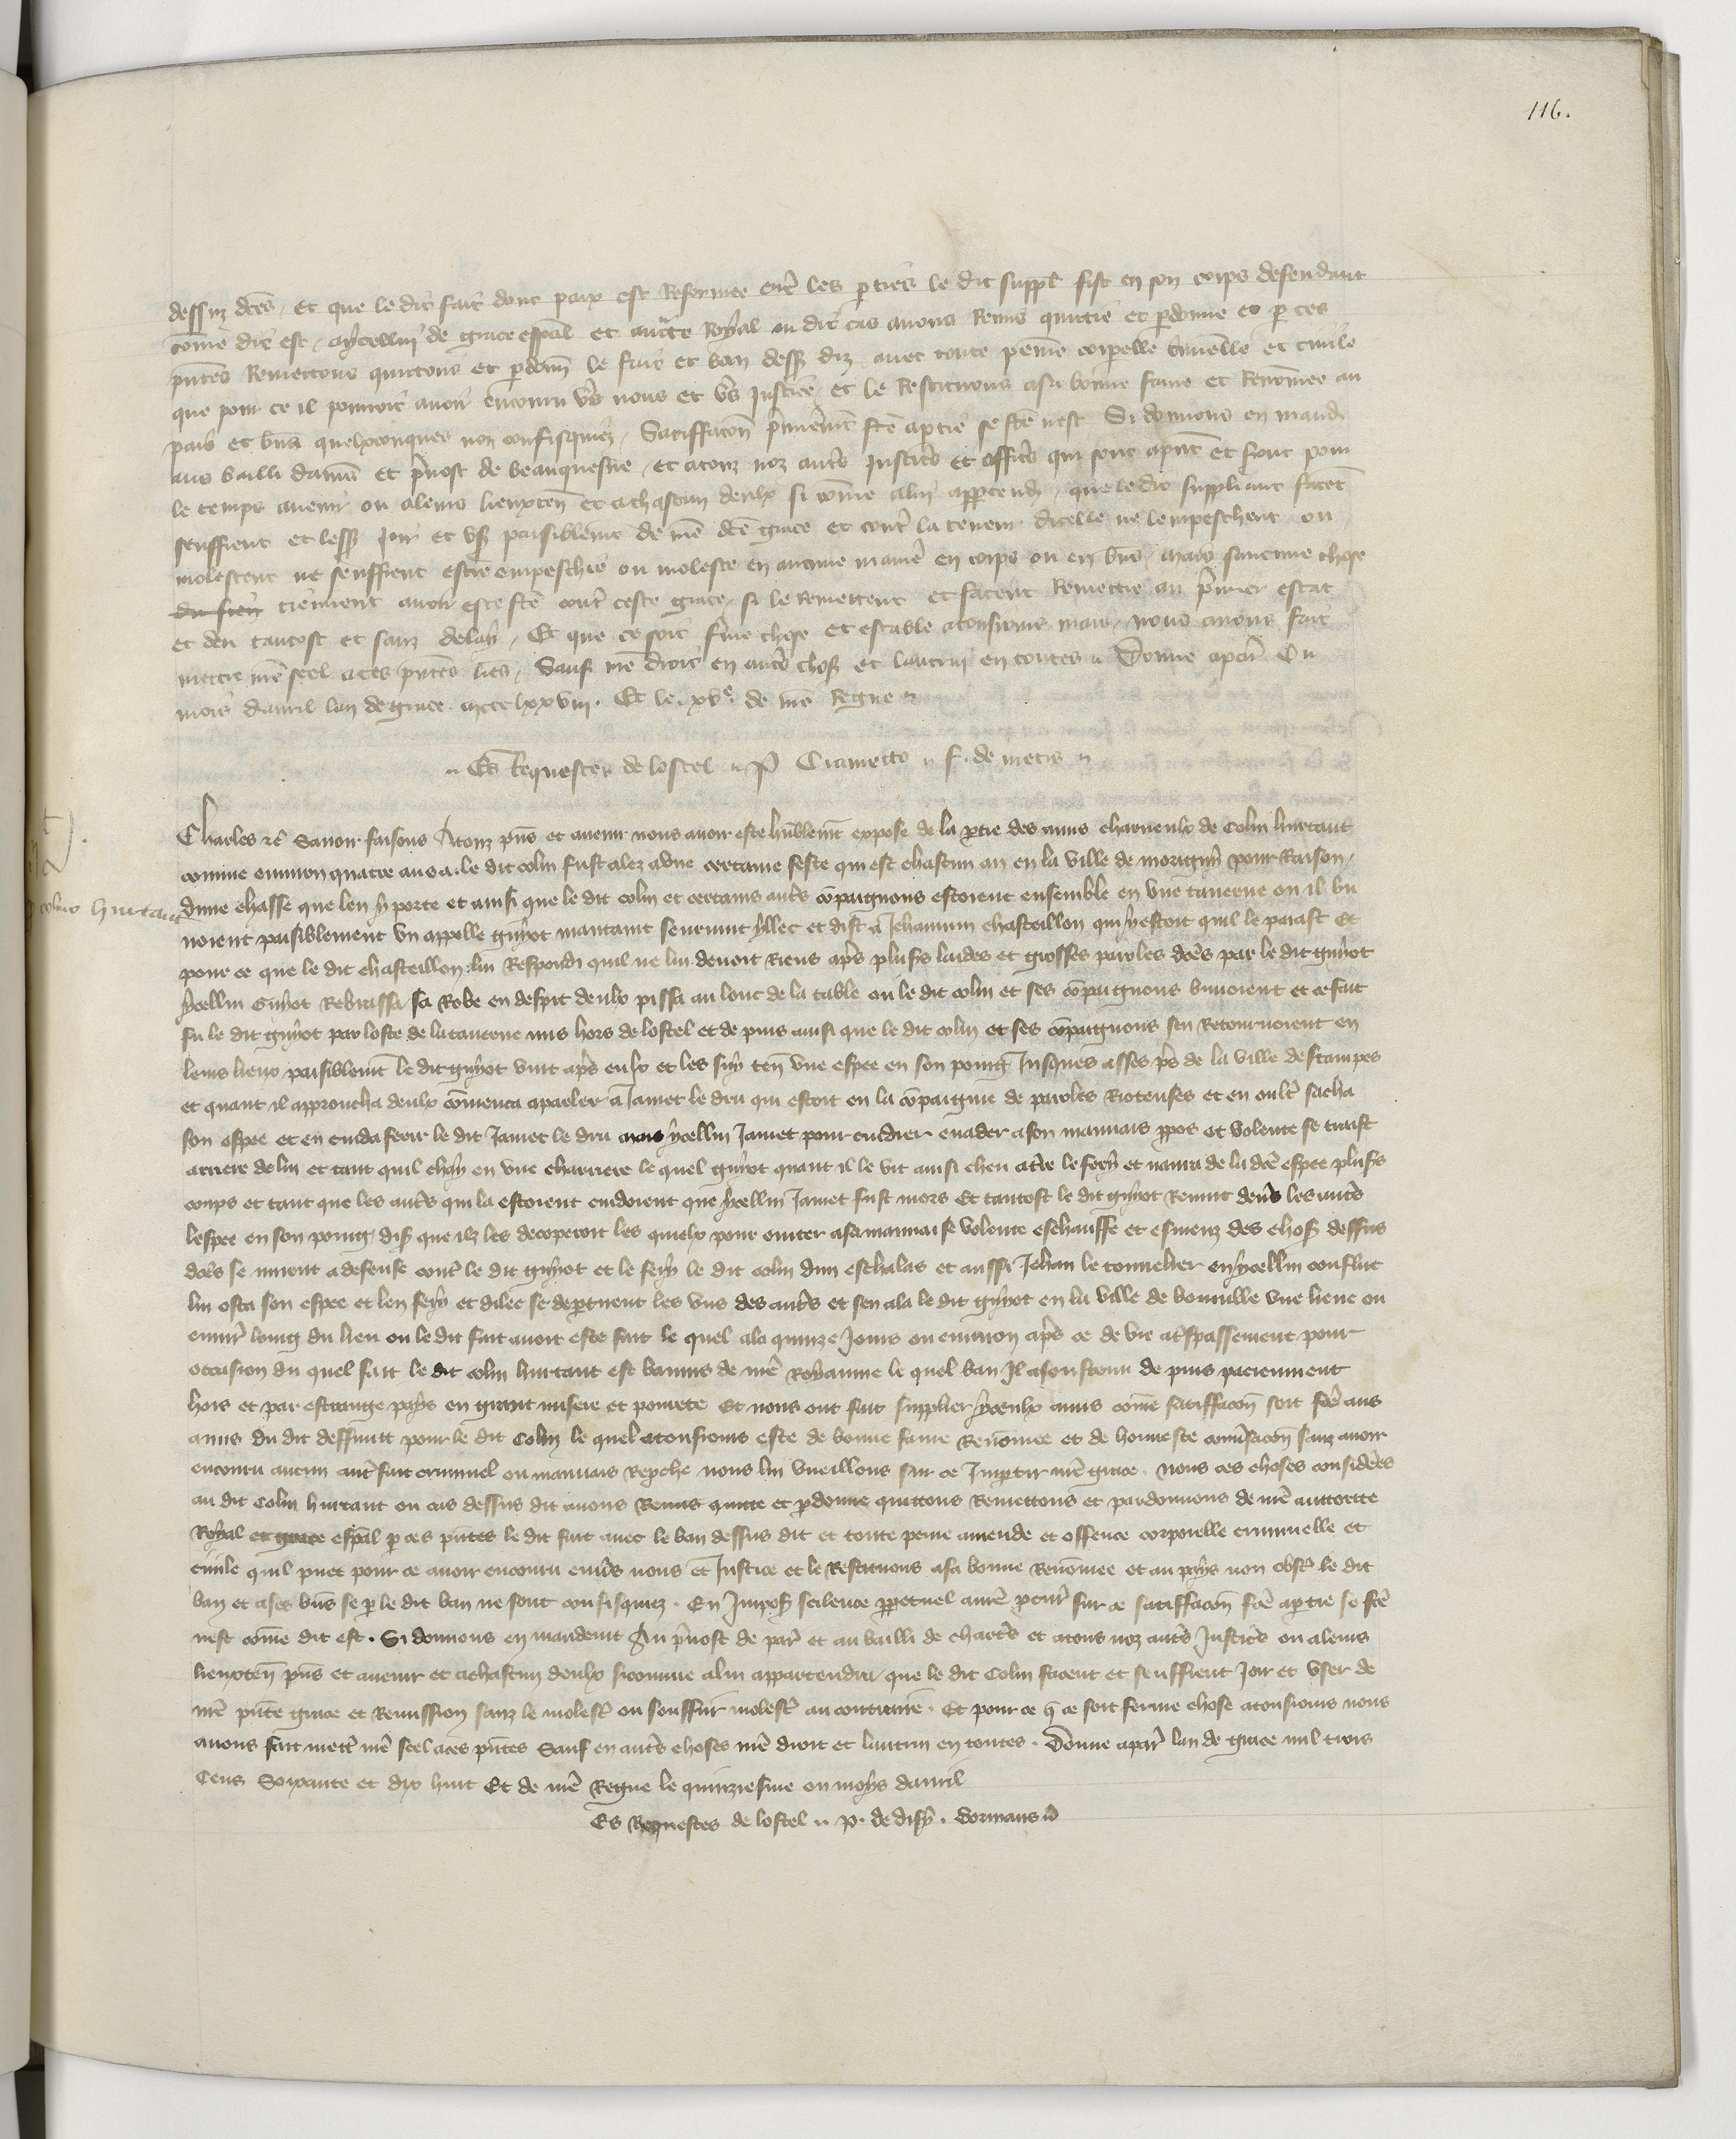 116.
dessuz dites, et que le dit fait dont paix est Reformee entre les parties le dit suppl fist en son corps defendant
comme dit est, aycellui de grace espal et aucte Royal ou dit cas avons Remis quictie et pardonne et par ces
pntes Remettons quictons et pardonn le fait et ban dess diz avec toute peinne corporelle criminelle et civile
que pour ce il pourroit avoir encouru vers nous et vers Justice, et le Restituons a sa bonne fame et Renommee au
pais et biens quelxconques non confisquiez, Satiffacon premierement fcte a partie se fcte nest Si donnons en mand
aus bailli damiens et prevost de beauquesne, et a touz noz autres Justiciers et officiers qui sont a pnt et seront pour
le temps avenir ou a leurs lieuxten et a chascun deulx si comme a lui appartendra, que le dit suppliant facent
seuffrent et less Joir et user paisiblement de nre dcte grace et contre la teneur dicelle ne lempeschent ou
molestent ne seuffrent estre empeschie ou moleste en aucune maniere en corps ou en biens, mais saucune chose
du sien treuvent avoir este fcte contre ceste grace, si le Remettent et facent Remettre au premier estat
et deu tantost et sanz delay, Et que ce soit ferme chose et estable a tousjours mais, nous avons fait
mettre nre seel a ces pntes lres, Sauf nre droit en autres choses et lautrui en toutes. Donne a paris Ou
mois davril lan de grace mccclxxviii. Et le xve de nre Regne
Es Requestes de lostel P Cramette f. de metis
Colino hurtaut
Charles etc Savoir faisons A touz pns et avenir nous avoir este humblement expose de la partie des amis charnenlx de Colin hurtaut
comme environ quatre ans a le dit colin fust alez a une certaine feste qui est chascun an en la ville de morigny pour Raison
dune chasse que len y porte et ainsi que le dit colin et certains autres compaignons estoient ensemble en une taverne ou il bu
voient paisiblement un appelle guyot mautaint seurvint yllec et dist a Jehannin chasteillon qui y estoit quil le paiast Et
pour ce que le dit chasteillon lui Respondi quil ne lui devoit Riens apres plusrs laides et grosses paroles dctes par le dit guyot
ycellui Guyot Rebrassa sa Robe en despit deulx pissa au bout de la table ou le dit colin et ses compaignons buvoient et ce fait
fu le dit guyot par loste de la taverne mis hors de lostel et de puis ainsi que le dit colin et ses compaignons sen Retournoient en
leurs lieux paisiblement le dit guyot vint apres eulx et les suy ten une espee en son poing Jusques asses pres de la ville destampes
et quant il approucha deulx commenca a parler a Jamet le dru qui estoit en la compaignie de paroles Rioteuses et en oultre sacha
son espee et en cuida ferir le dit Jamet le dru mais ycellui Jamet pour cuidier evader a son mauvais ppos et volente se traist
arriere de lui et tant quil chey en une charriere le quel guyot quant il le vit ainsi cheu a terre le fery et navra de la dcte espee plusrs
coups et tant que les autres qui la estoient cuidoient que ycellui Jamet fust mors Et tantost le dit guyot Revint devers les autres
lespee en son poing dis que ilz les decoperoit les quielx pour eviter a sa mauvaise volente eschauffe et esmeuz des choses dessus
dctes se mirent a defense contre le dit guyot et le fery le dit colin dun eschalas et aussi Jehan le tonnelier en ycellui conflict
lui osta son espee et len fery et dilec se departirent les uns des autres et sen ala le dit guyot en la ville de bonville une lieue ou
environ loing du lieu ou le dit fait avoit este fait le quel ala quinze Jours ou environ apres ce de vie a trespassement pour
occasion du quel fait le dit colin hurtaut est bannis de nre Royaume le quel ban Il a soustenu de puis paciemment
hors et par estrange pays en grant misere et povrete Et nous ont fait supplier yceulx amis comme satiffacon soit fcte aus
amis du dit deffunct pour le dit Colin le quel a tousjours este de bonne fame Renommee et de honneste conversacon sanz avoir
encouru aucun autre fait criminel ou mauvais Reproche nous lui vueillons sur ce Impartir nre grace. Nous ces choses considerees
au dit Colin hurtaut ou cas dessus dit avons Remis quitte et pardonne quittons Remettons et pardonnons de nre auttorite
Royal et grace espal par ces pntes le dit fait avec le ban dessus dit et toute peine amende et offence corporelle criminelle et
civile quil puet pour ce avoir encouru envers nous et Justice et le Restituons a sa bonne Renommee et au pays non obst le dit
ban et a ses biens se par le dit ban ne sont confisquiez. En Imposant scilence perpetuel a nre procureur sur ce satiffacon fcte a partie se fcte
nest comme dit est. Si donnons en mandement Au prevost de paris et au bailli de chartres et a tous noz autres Justiciers ou a leurs
lieuxten pns et avenir et a chascun deulx si comme a lui appartendra que le dit Colin facent et seuffrent Joir et user de
nre pnte grace et Remission sanz le molester ou souffrir molester au contraire. Et pour ce que ce soit ferme chose a tousjours nous
avons fait mettre nre seel a ces pntes Sauf en autres choses nre droit et lautrui en toutes. Donne a paris lan de grace mil trois
Cens Soixante et dix huit Et de nre Regne le quinziesme ou moys davril
Es Requestes de lostel p. de disy. Dormans